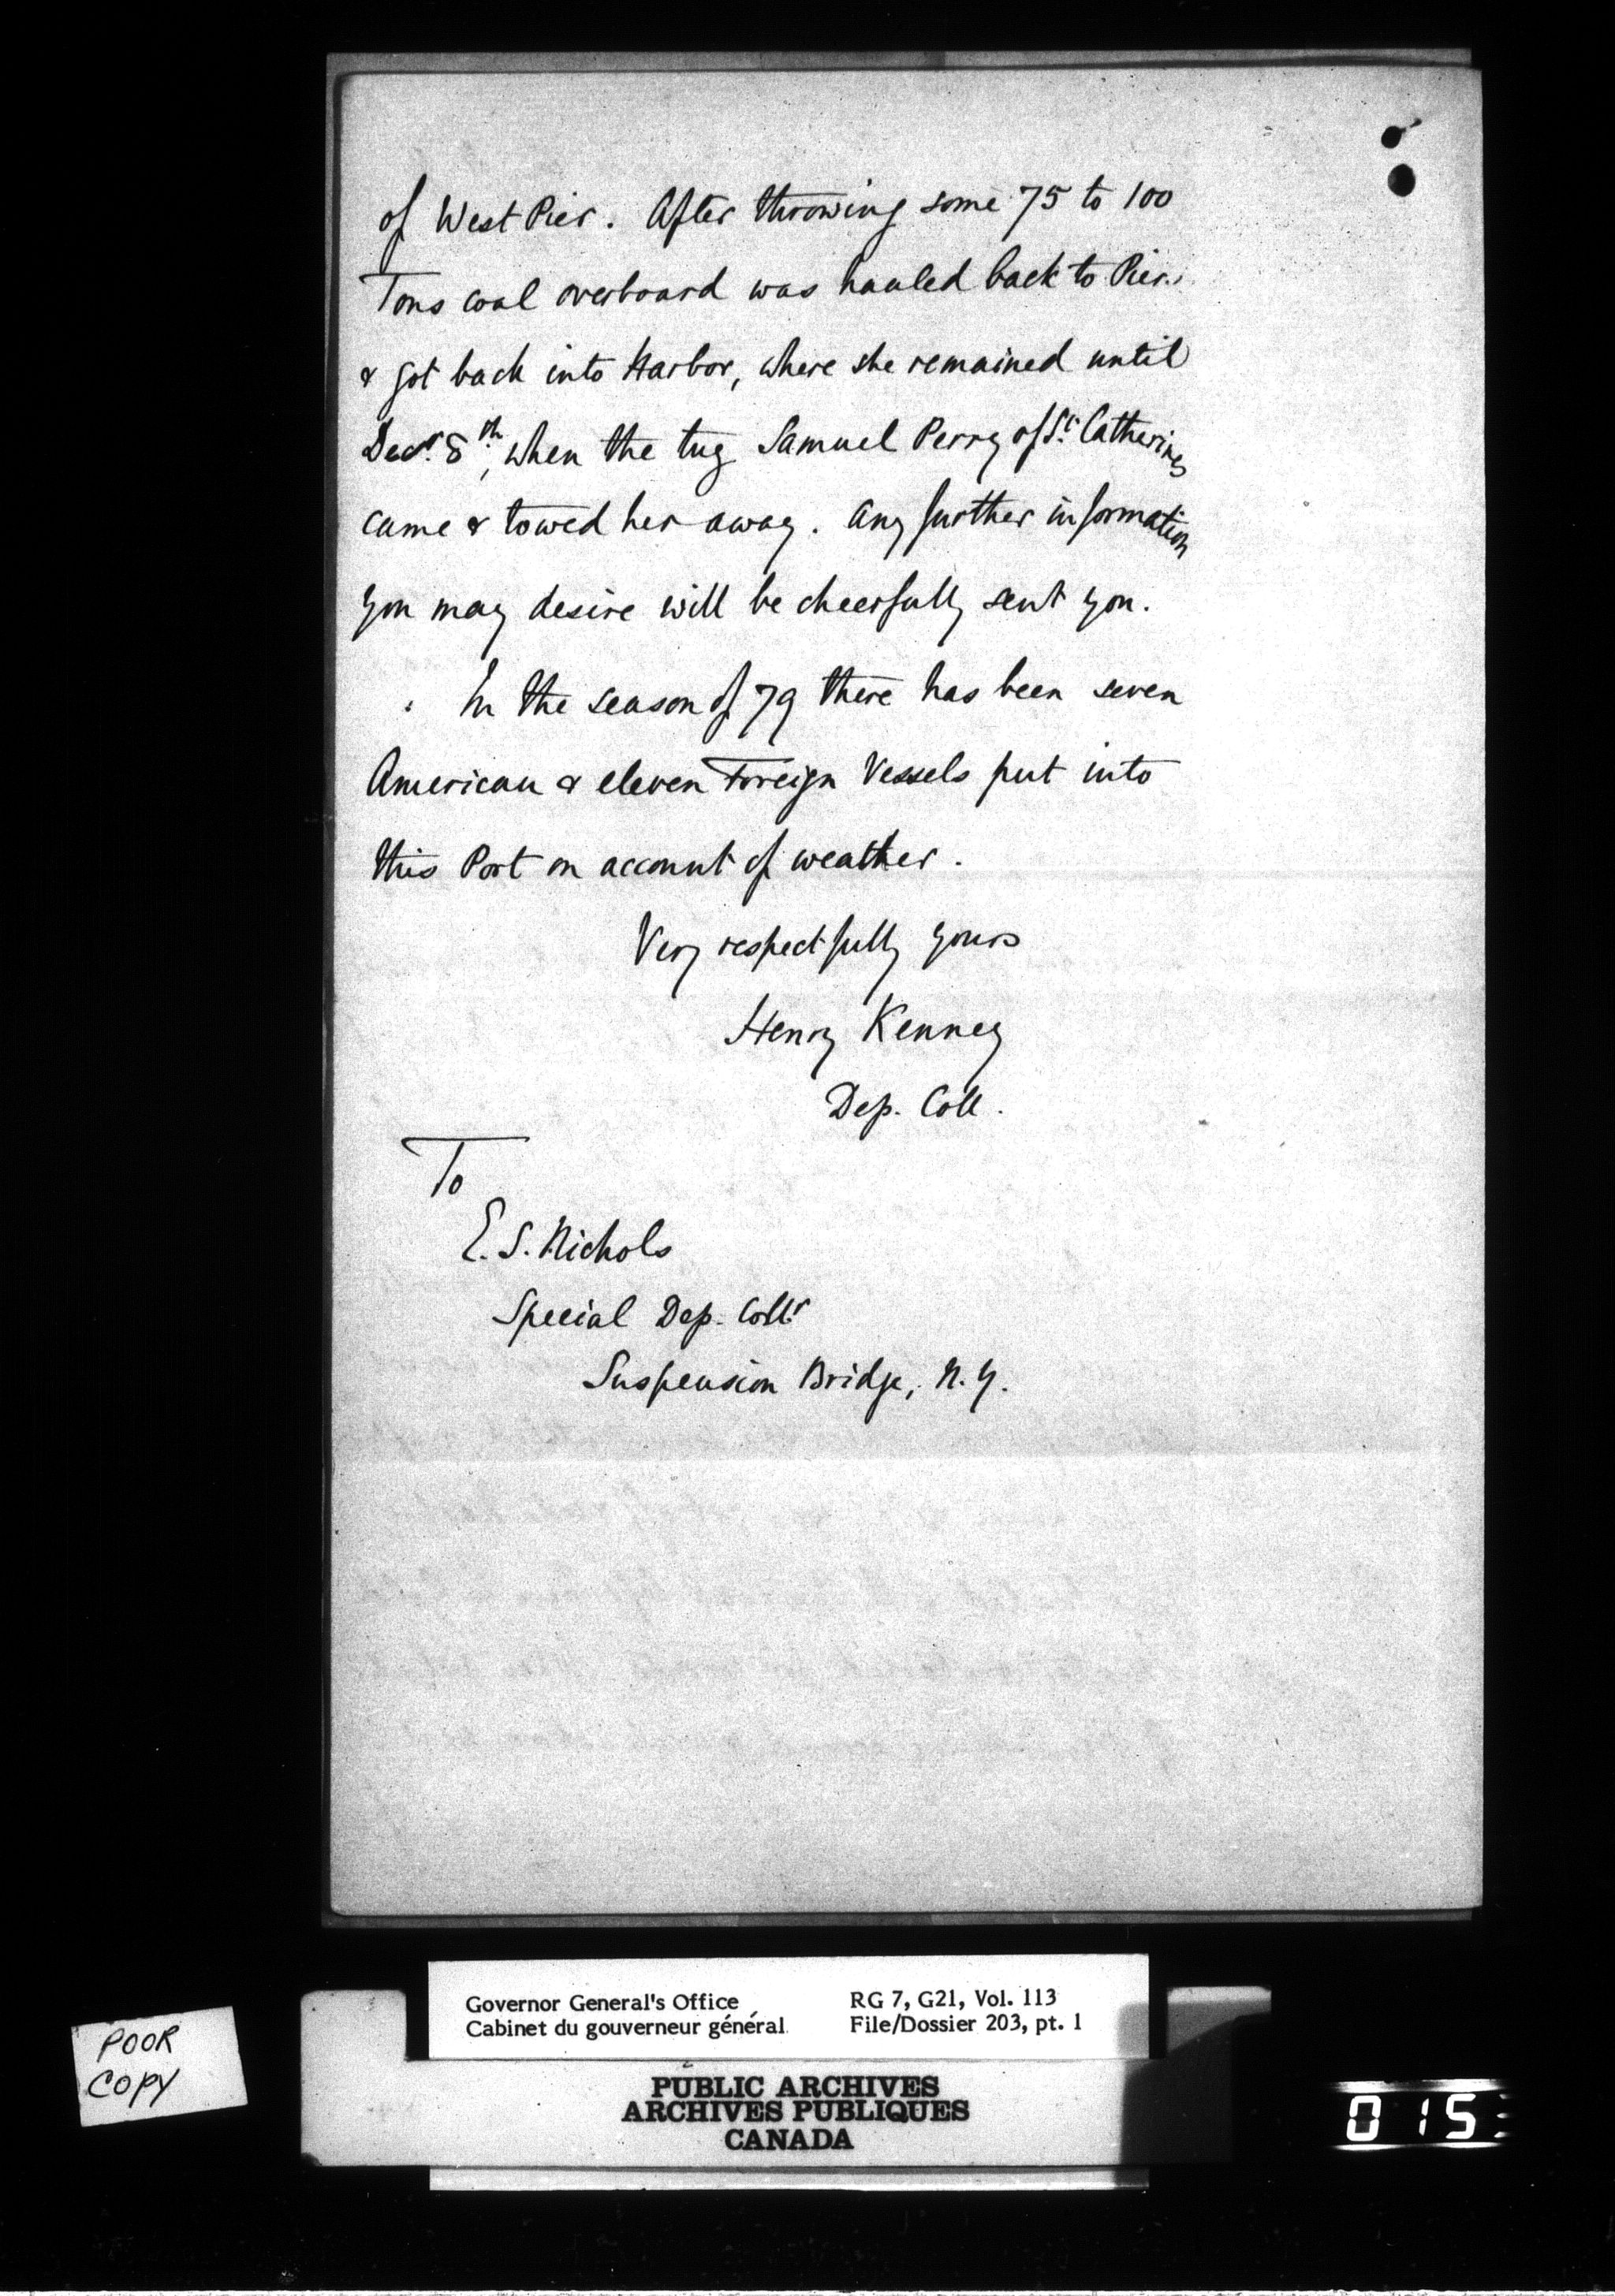 of West Pier. After throwing some 75 to 100
Tons coal overboard was hauled back to Pier,
& got back into Harbor, where she remained until
Decr. 8th, when the tug Samuel Perry of St. Catherines
came & towed her away. Any further information
you may desire will be cheerfully sent you.
In the season of 79 there has been seven
American & eleven Foreign Vessels put into
this Port on account of weather.
Very respectfully yours
Henry Kenney
Dep. Coll.
To
E. S. Nichols
Special Dep. Collr
Suspension Bridge, N.Y.
Governor General's Office RG 7, G21, Vol. 113
Cabinet du gouverneur général File/Dossier 203, pt. 1
POOR
COPY
PUBLIC ARCHIVES
ARCHIVES PUBLIQUES
CANADA
015